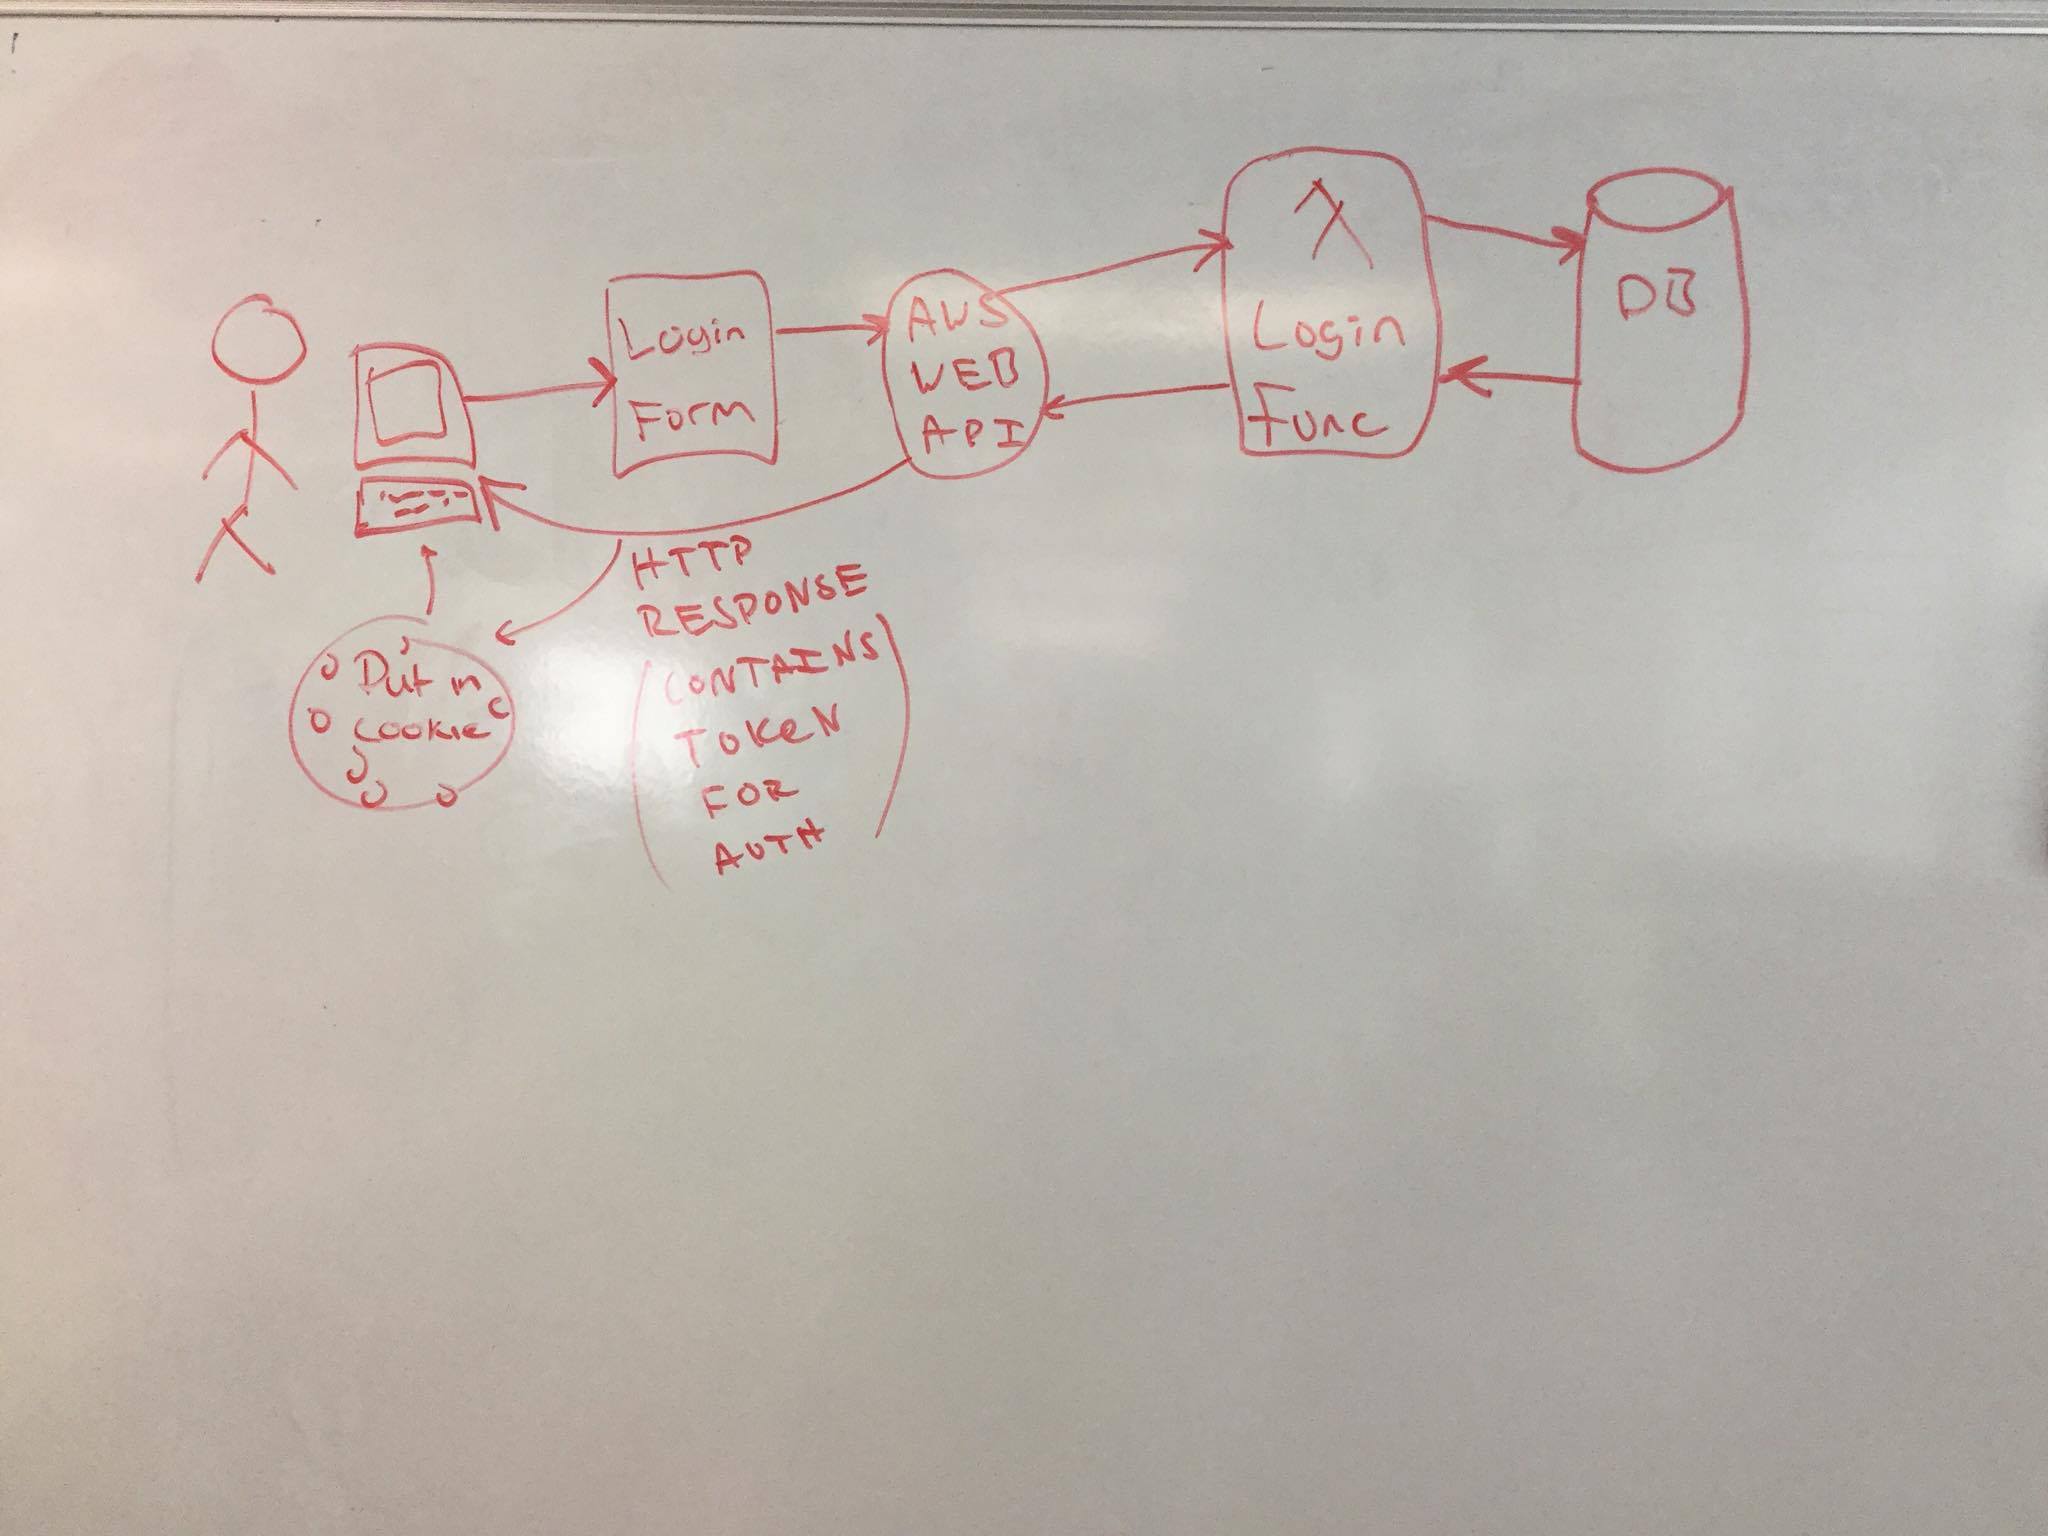 Login
Form
AWS
WEB
API
λ
Login
Func
DB
HTTP
RESPONSE
(CONTAINS
TOKEN
FOR
AUTH)
Put in
cookie